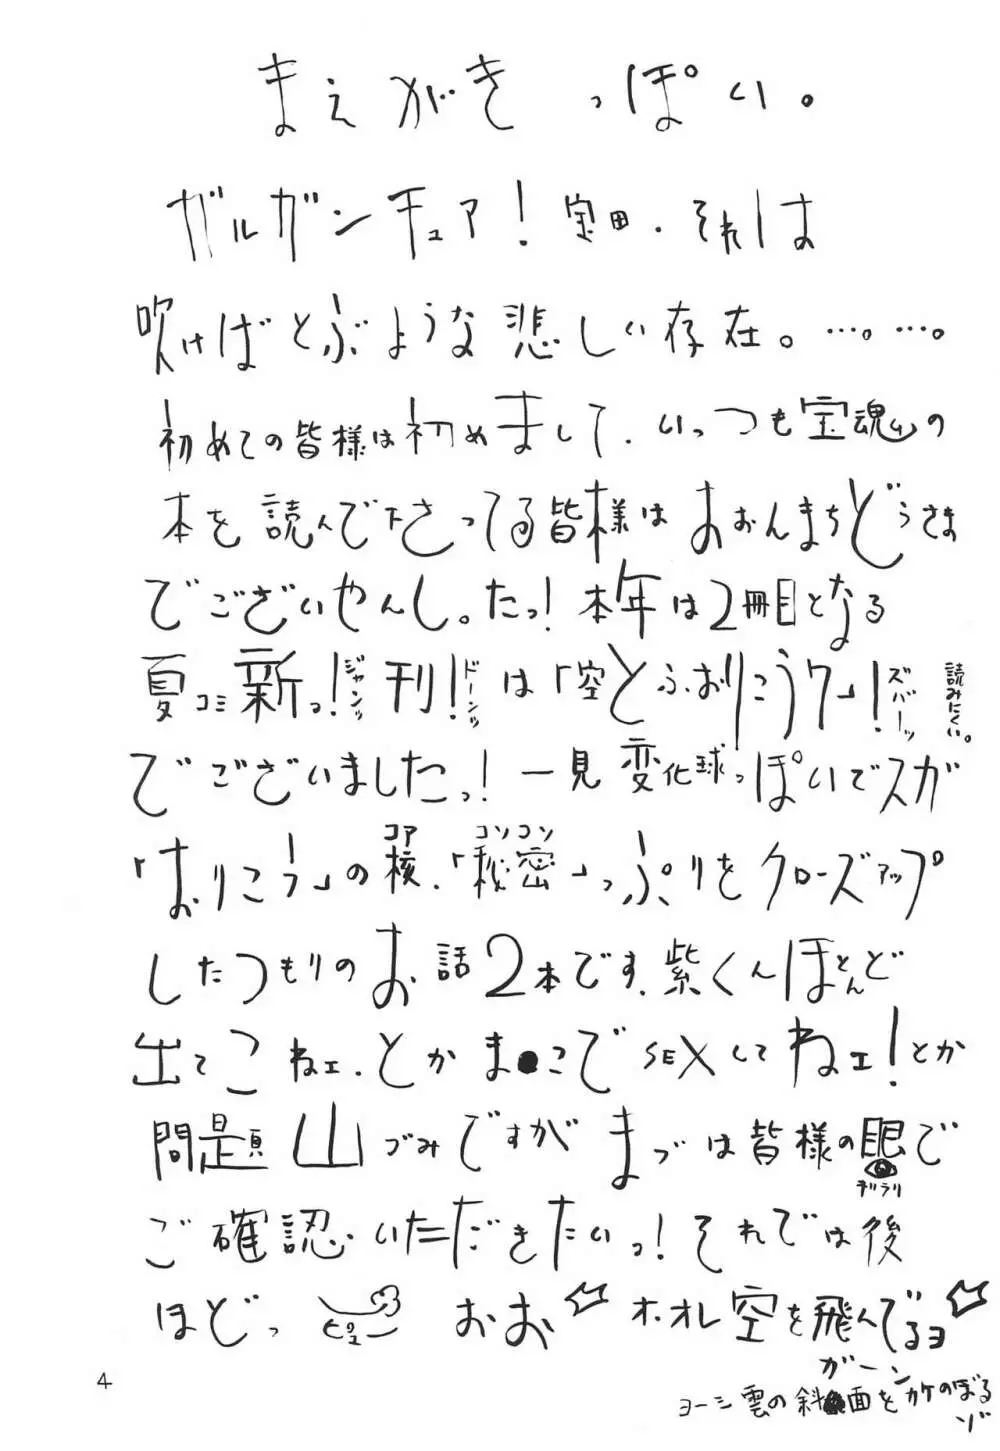 まえがきっぽい。
ガルガンチュア！宝田．それは
吹けばとぶような悲しい存在。…。…。
初めての皆様は初めまして．いっつも宝魂ムの
本を読んで下さってる皆様はおおんまちどぅさま
でございやんし。たっ！本年は2冊目となる
夏コミ新っ！ジャンッ刊！ドーンッは「空とふおりこうワ」！ズバーッ 読みにくい。
でございましたっ！一見変化球っぽいでスガ
コア コソコソ
「おりこう」の核．「秘密」っぷりをクローズアップ
したつもりのお話2本です．紫くんほとんど
出てこねェ．とかま●こでSEXしてねェ！とか
問題山づみですがまづは皆様の眼で
ギラリ
ご確認いただきたいっ！それでは後
ほどっ ピュー おお ホ、オレ空を飛んでるョ
ガーン
ヨーシ雲の斜面をカケのぼる
ゾ
4